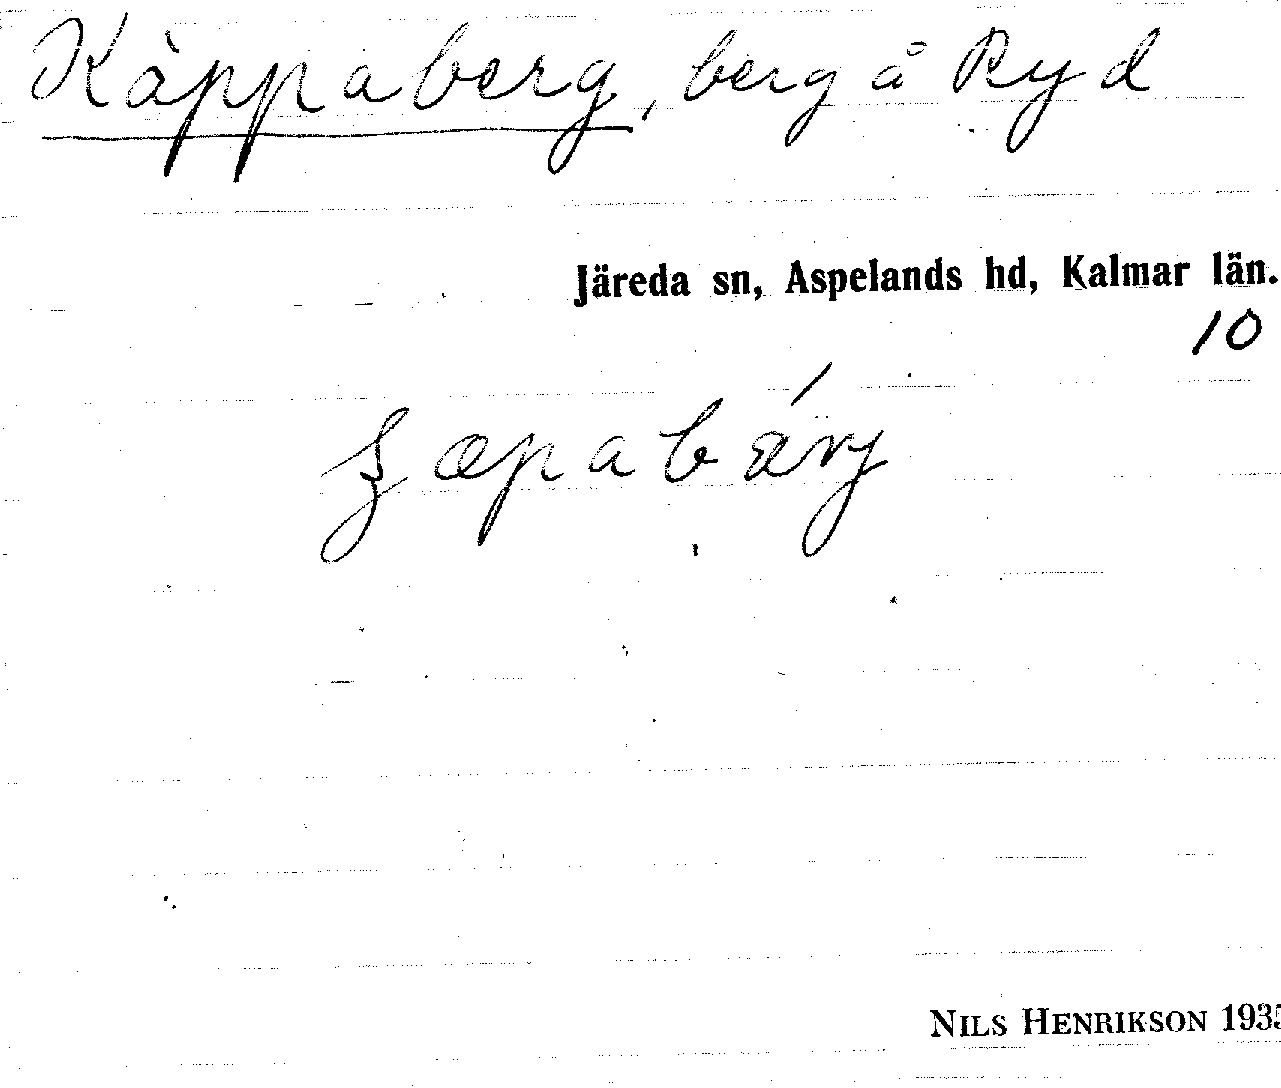 Käppaberg, berg å Ryd
Järeda sn, Aspelands hd, Kalmar län.
10
NILS HENRIKSON 1935